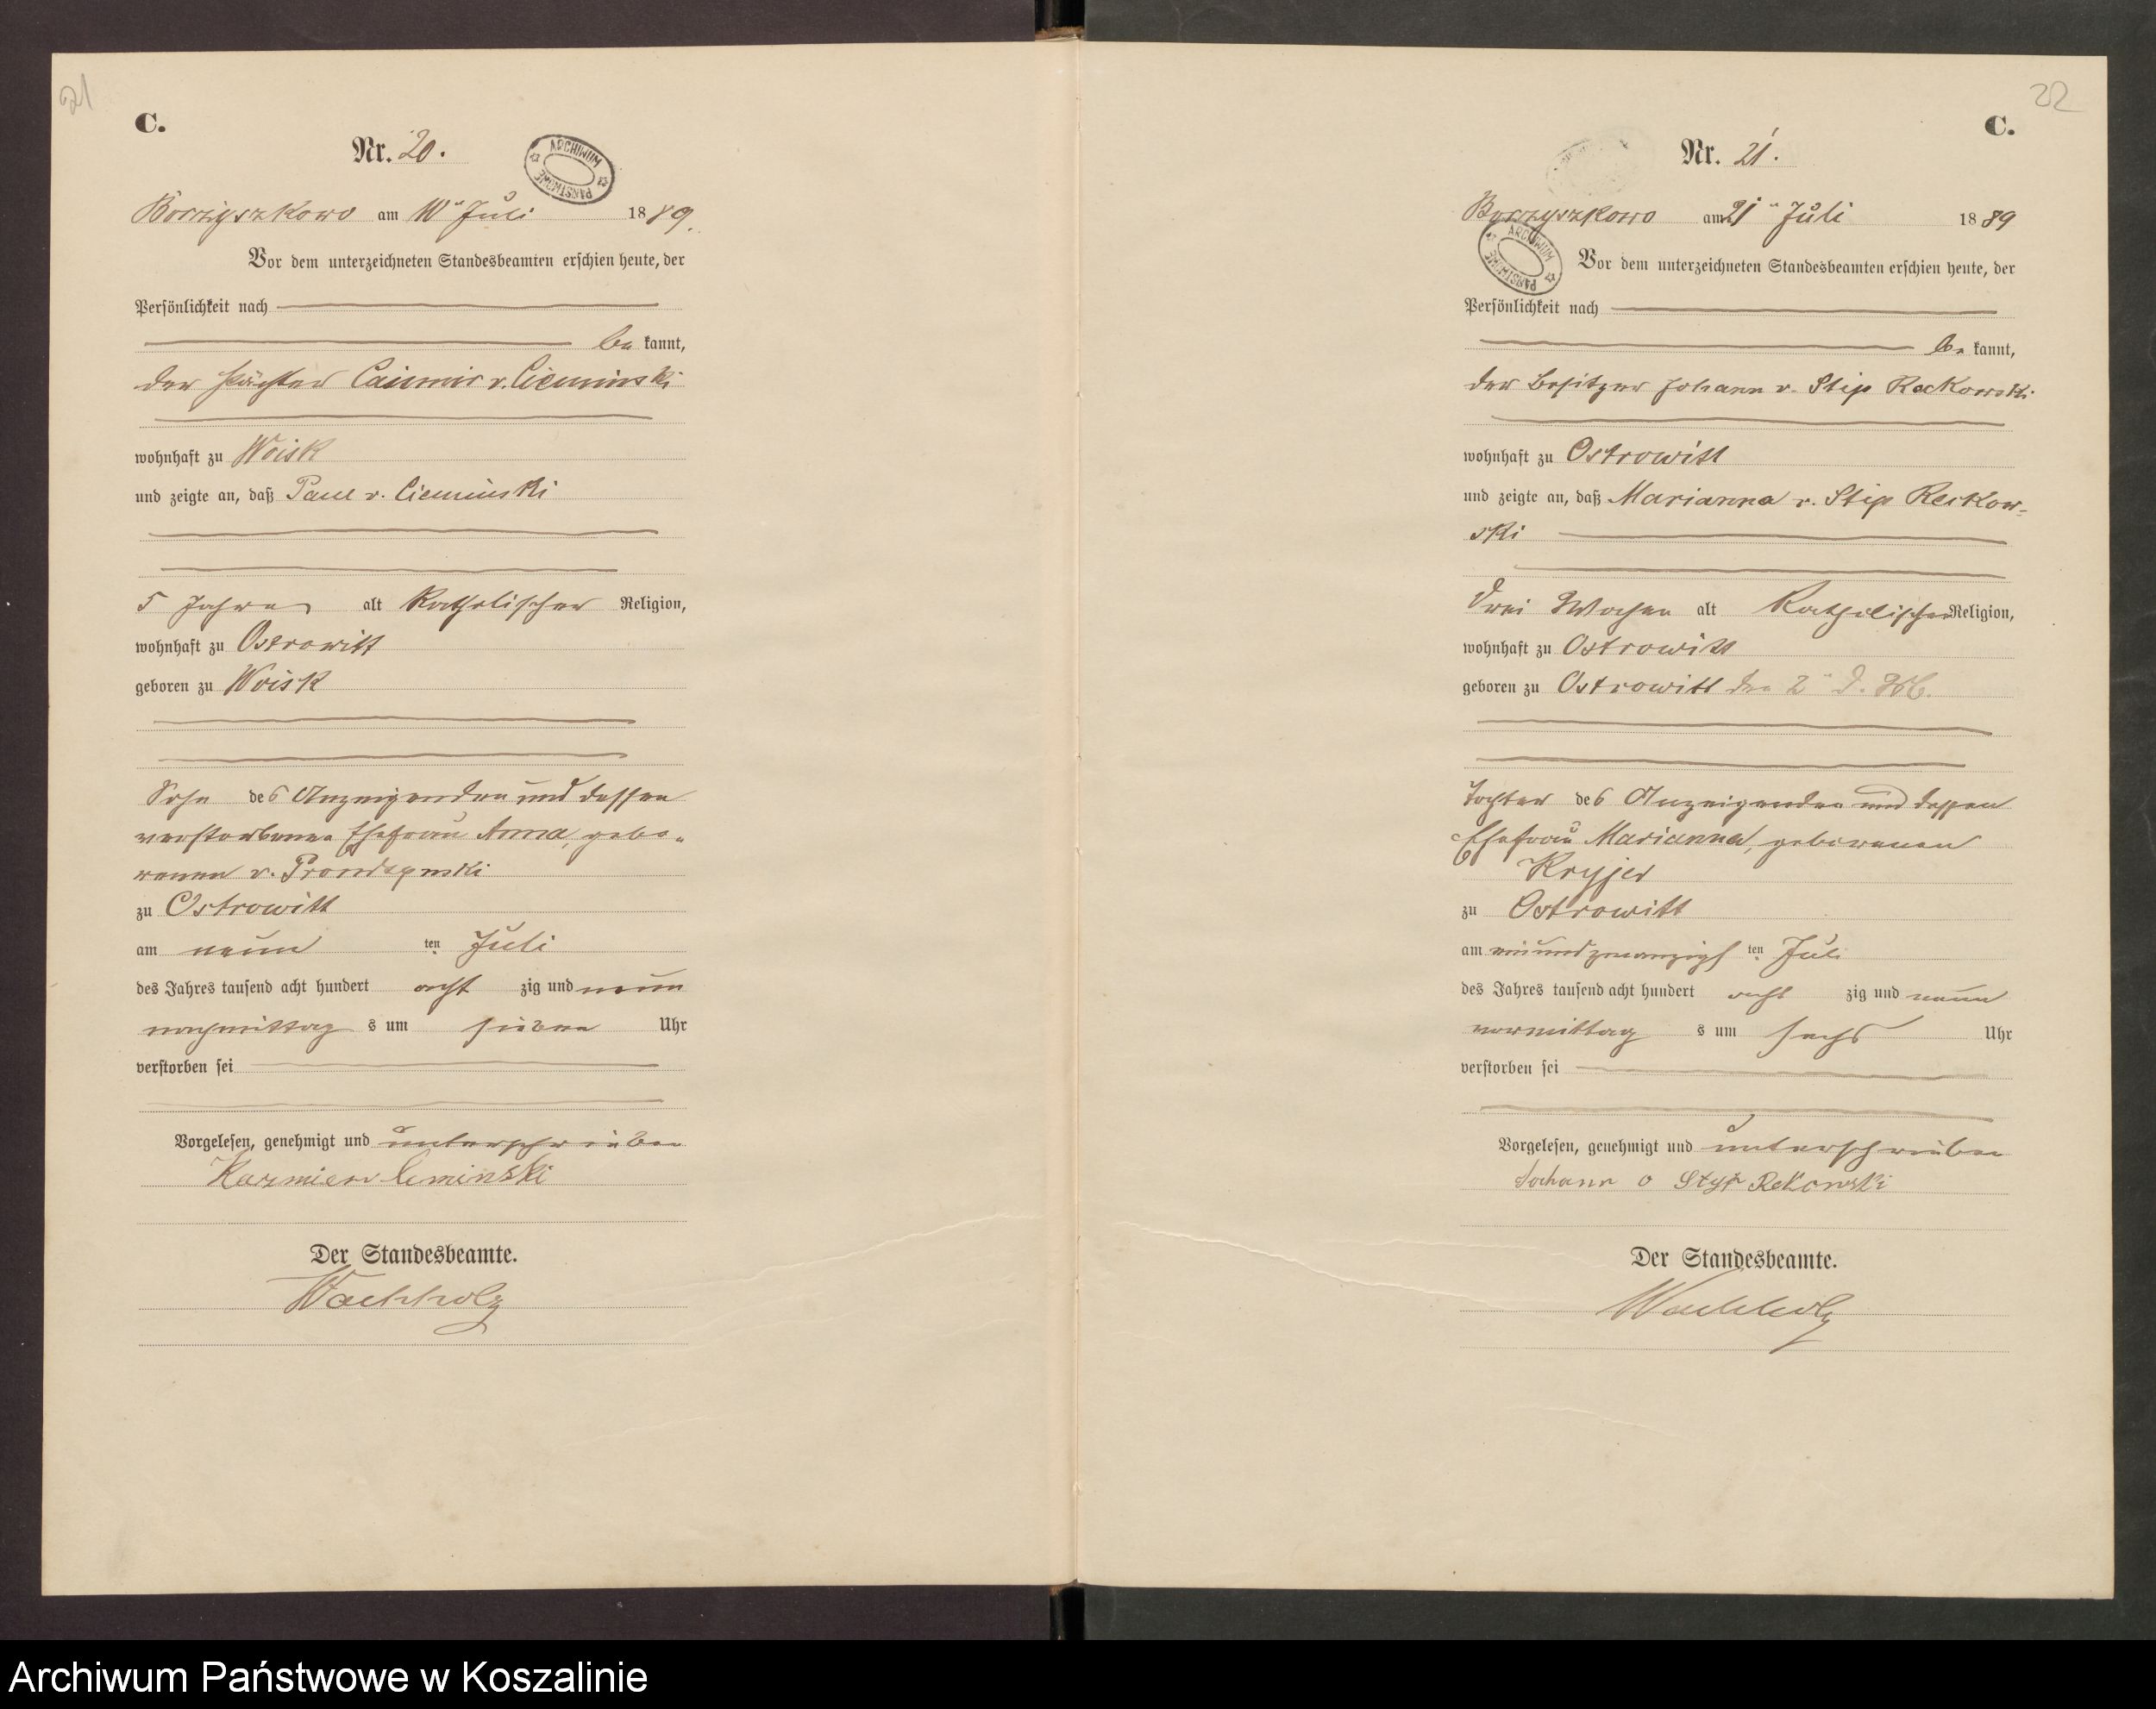 21
C.
Nr. 20.
ARCHIWUM PAŃSTWOWE
Borzyszkowo am 10ten Juli 1889.
Vor dem unterzeichneten Standesbeamten erschien heute, der
Persönlichkeit nach
be kannt,
der Pächter Casimir v. Cieminski
wohnhaft zu Woisk
und zeigte an, daß Paul v. Cieminski
5 Jahre alt katholischer Religion,
wohnhaft zu Ostrowitt
geboren zu Woisk
Sohn des Anzeigenden und dessen
verstorbenen Ehefrau Anna, gebo-
renen v. Prondzynski
zu Ostrowitt
am neun ten Juli
des Jahres tausend acht hundert acht zig und neun
nachmittag s um sieben Uhr
verstorben sei
Vorgelesen, genehmigt und unterschrieben
Kazmierz Cminski
Der Standesbeamte.
Wachholz
22
C.
Nr. 21.
Borzyszkowo am 21ten Juli 1889
ARCHIWUM PAŃSTWOWE
Vor dem unterzeichneten Standesbeamten erschien heute, der
Persönlichkeit nach
be kannt,
der Besitzer Johann v. Stip Reckowski
wohnhaft zu Ostrowitt
und zeigte an, daß Marianna v. Stip Reckow-
ski
drei Wochen alt katholischer Religion,
wohnhaft zu Ostrowitt
geboren zu Ostrowitt den 2ten d.
Tochter des Anzeigenden und dessen
Ehefrau Marianna, geborenen
Kryjer
zu Ostrowitt
am einundzwanzigs ten Juli
des Jahres tausend acht hundert acht zig und neun
vormittag s um sechs Uhr
verstorben sei
Vorgelesen, genehmigt und unterschrieben
Johann v Styp Rekowski
Der Standesbeamte.
Wachholz
Archiwum Państwowe w Koszalinie